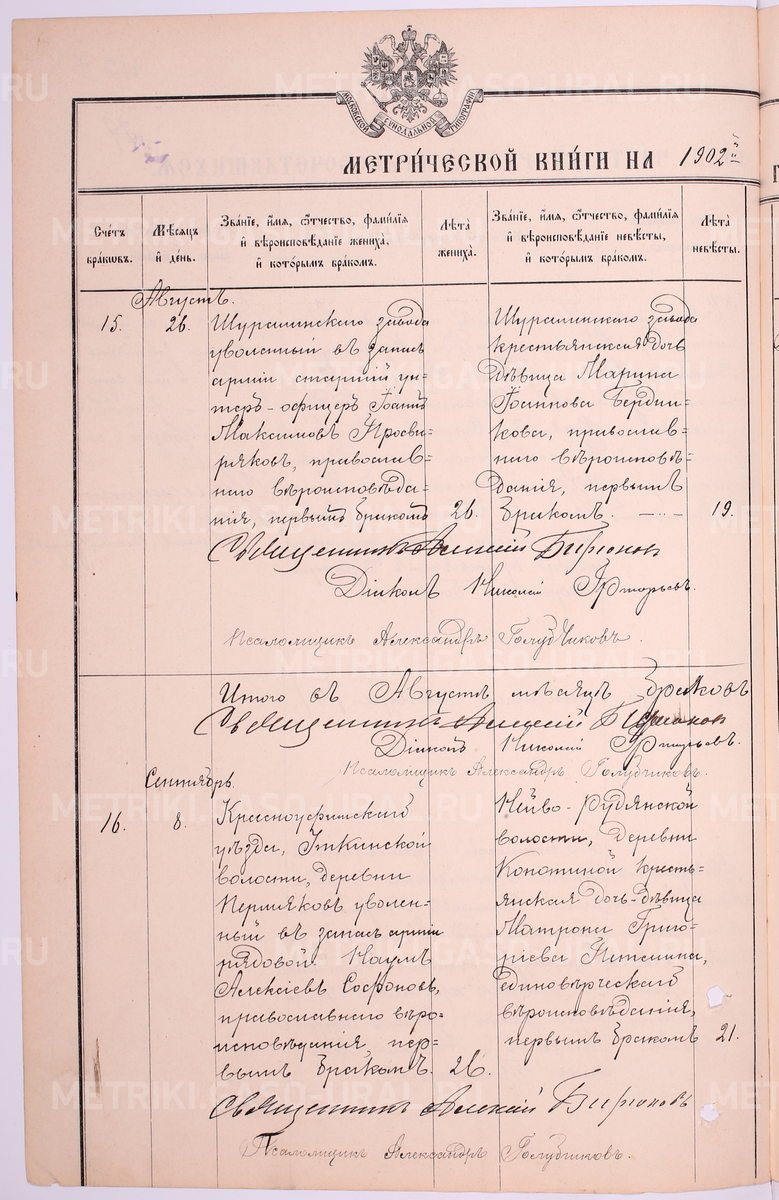 МОСКОВСКОЙ СѴНОДАЛЬНОЙ ТИПОГРАФІИ
МЕТРИ́ЧЕСКОЙ КНИ́ГИ НА 1902й
Сче́тъ бра́кωвъ.
Мѣ́сяцъ и҆ де́нь.
Зва́нїе, и҆́мя, ѻ҆́тчество, фами́лїя
и҆ вѣроисповѣ́данїе жениха̀,
и҆ кото́рымъ бра́комъ.
Лѣ̑та жениха̀.
Зва́нїе, и҆́мя, ѻ҆́тчество, фами́лїя
и҆ вѣроисповѣ́данїе невѣ́сты,
и҆ кото́рымъ бра́комъ.
Лѣ̑та невѣ́сты.
Августъ.
15.
26.
Шуралинскаго завода
уволенный въ запасъ
арміи старшій ун=
теръ-офицеръ Іоаннъ
Максимовъ Просви=
ряковъ, православ=
наго вѣроисповѣда=
нія, первымъ бракомъ
26.
Шуралинскаго завода
крестьянская дочь
дѣвица Марина
Іоаннова Бердни=
кова, православ=
наго вѣроисповѣ=
данія, первымъ
бракомъ.
19.
Священникъ Алексій Бирюковъ
Діаконъ Николай Григорьевъ.
Псаломщикъ Александръ Голубчиковъ.
Итого въ Августѣ мѣсяцѣ браковъ
Священникъ Алексій Бирюковъ
Діаконъ Николай Григорьевъ.
Псаломщикъ Александръ Голубчиковъ.
Сентябрь.
16.
8.
Красноуфимскаго
уѣзда, Уткинской
волости, деревни
Пермяковъ уволен=
ный въ запасъ арміи
рядовой Наумъ
Алексіевъ Софроновъ,
православнаго вѣро=
исповѣданія, пер=
вымъ бракомъ.
26.
Нейво-Рудянской
волости, деревни
Копотиной кресть=
янская дочь-дѣвица
Матрона Григо=
ріева
единовѣрческаго
вѣроисповѣданія,
первымъ бракомъ
21.
Священникъ Алексій Бирюковъ
Псаломщикъ Александръ Голубчиковъ.
METRIKI.GASO-URAL.RU